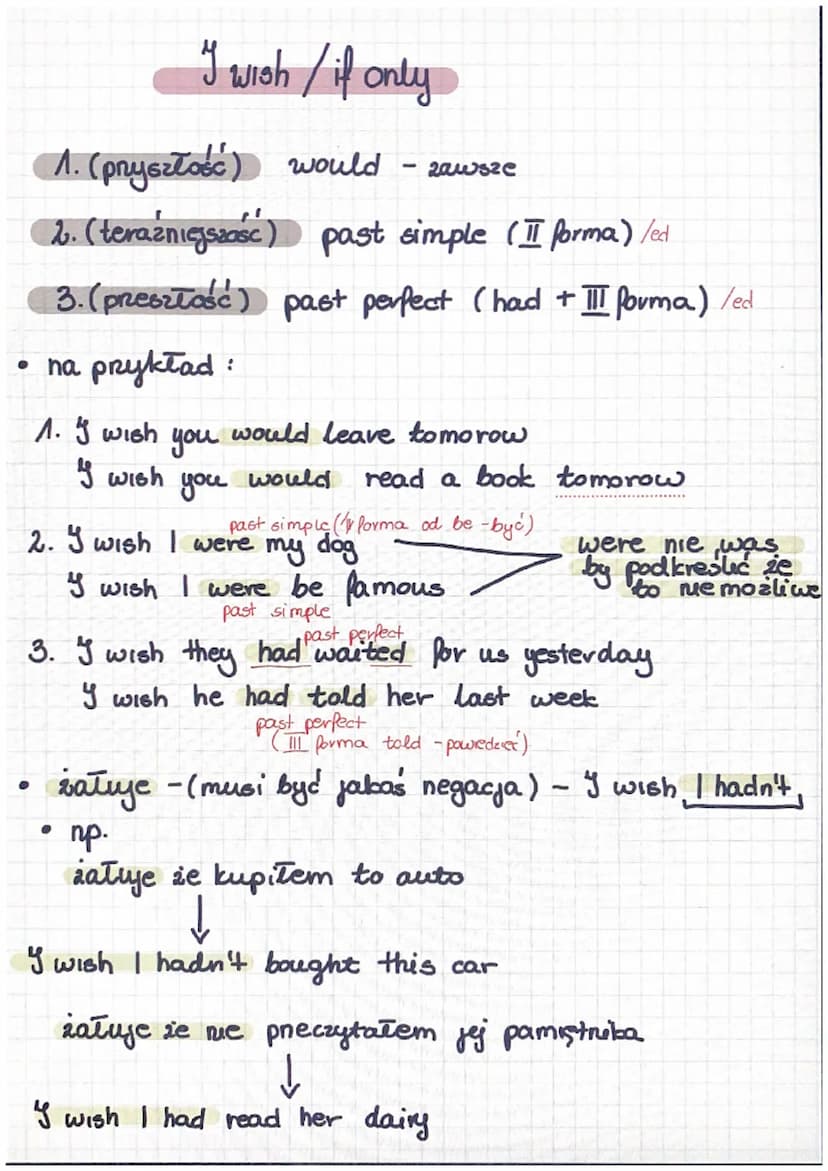 I wish / if only
1. (przyszłość) would - zawsze
2. (teraźniejszość) past simple (II forma) /ed
3. (przeszłość) past perfect (had + III forma) /ed
• na przykład :
1. I wish you would leave tomorow
I wish you would read a book tomorow
past simple (II forma od be - być)
2. I wish I were my dog
I wish I were be famous
past simple
were nie was
by podkreślić że
to niemożliwe
past perfect
3. I wish they had waited for us yesterday
I wish he had told her last week
past perfect
(III forma told - powiedzieć)
• żałuje - (musi być jakaś negacja) - I wish I hadn't
• np.
żałuje że kupiłem to auto
↓
I wish I hadn't bought this car
żałuje że nie przeczytałem jej pamiętnika
↓
I wish I had read her dairy